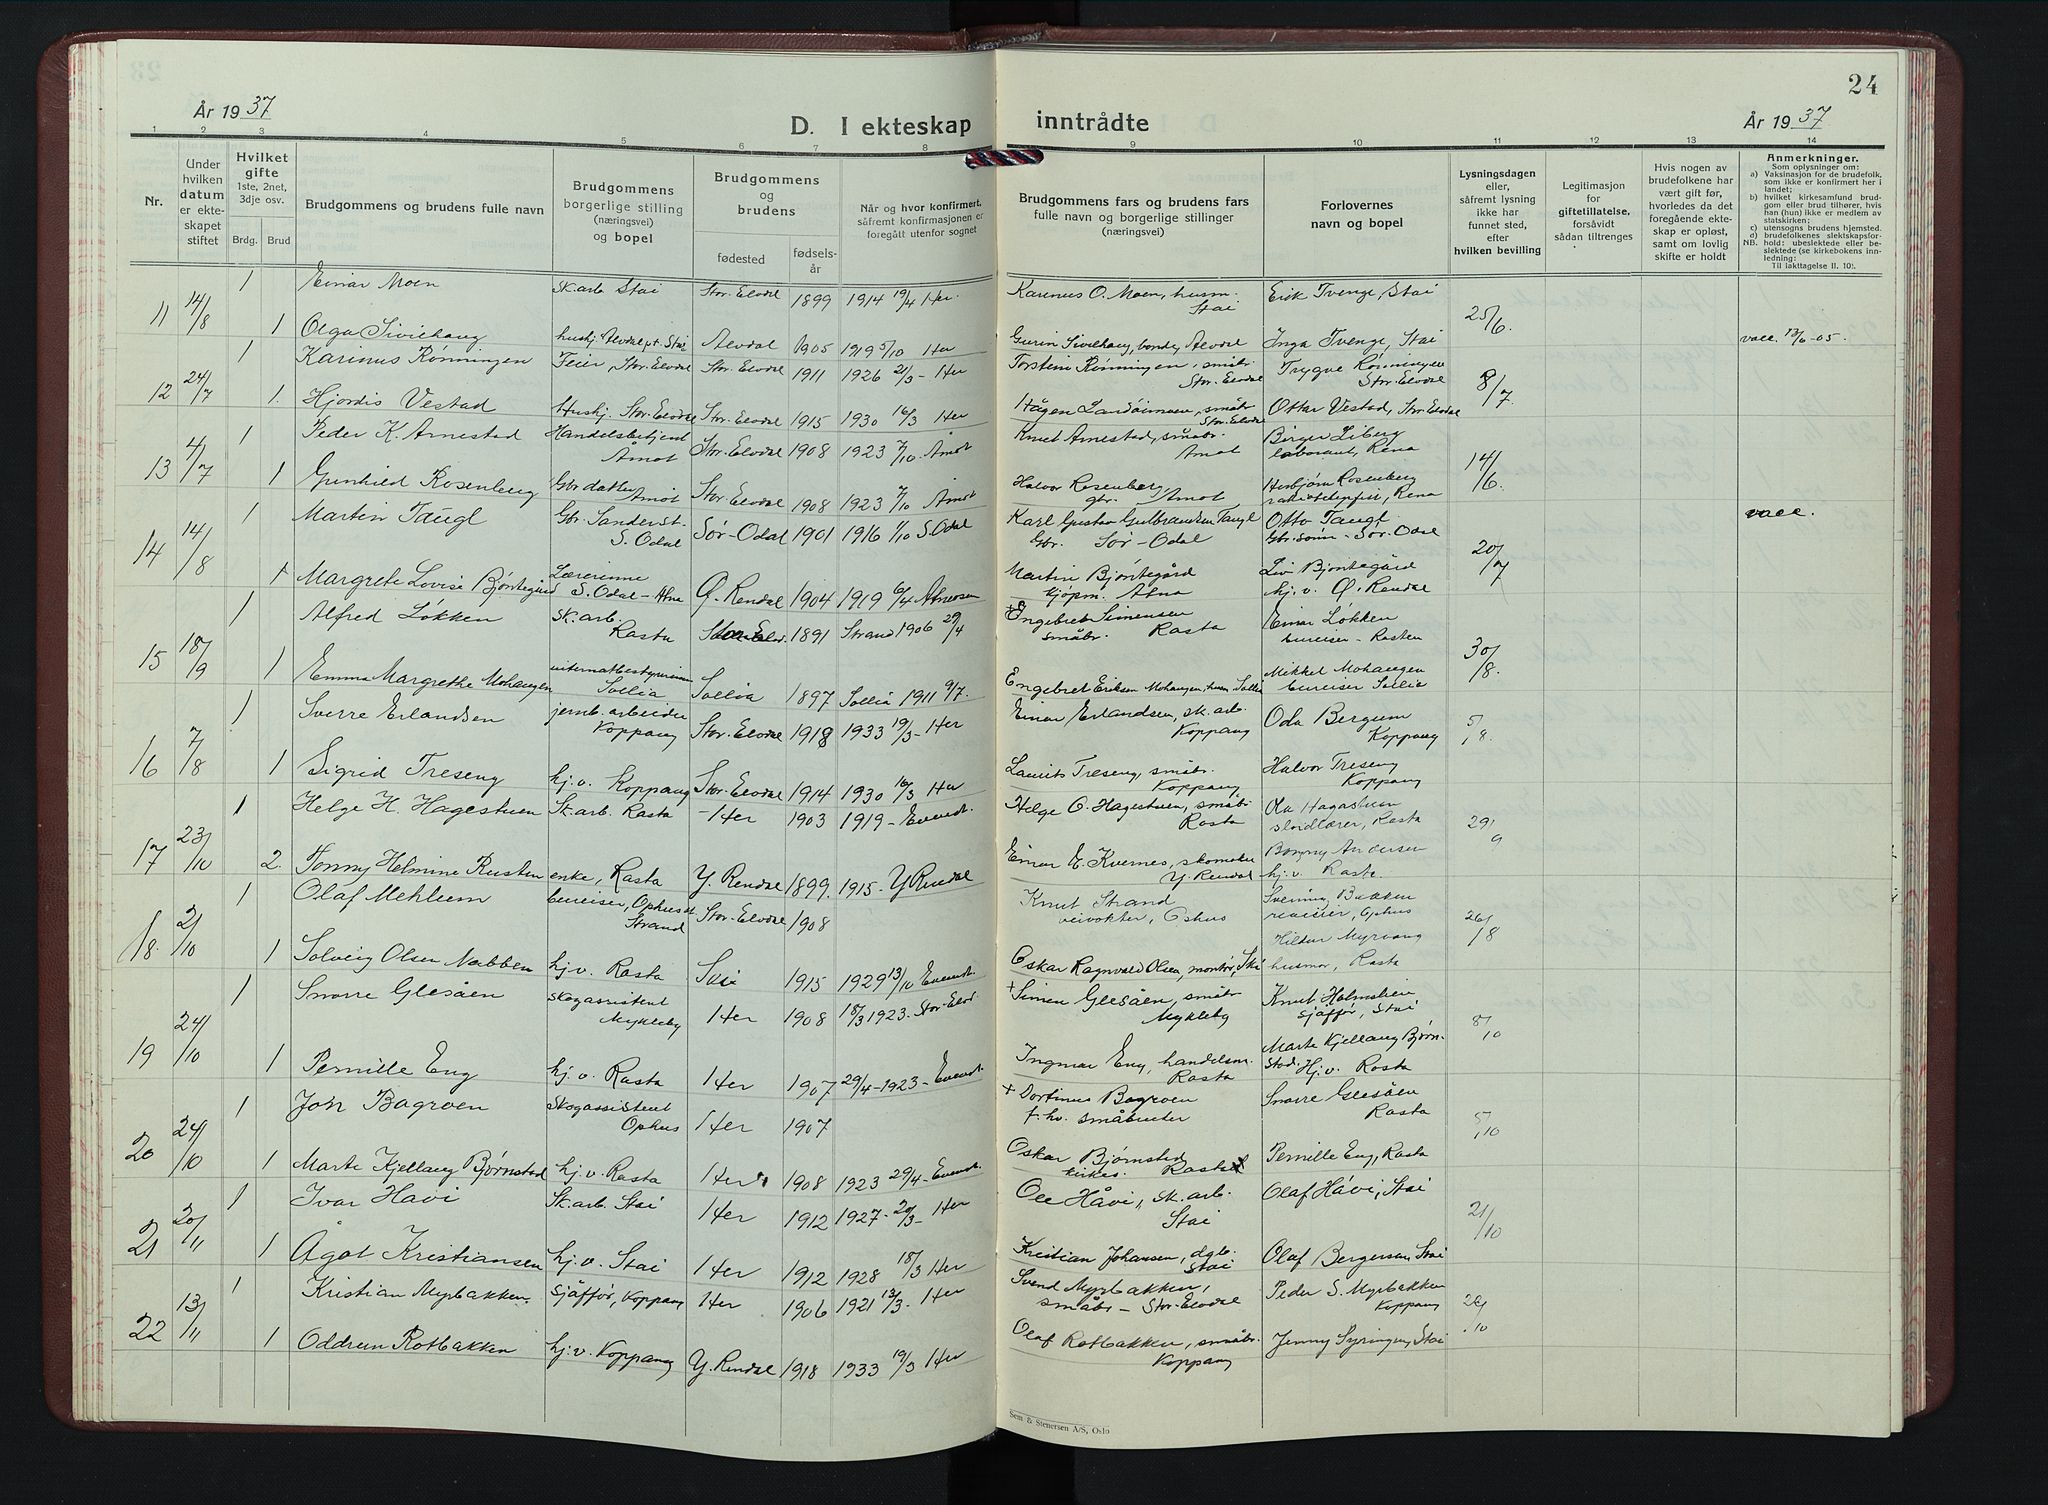 År 1937
D. I ekteskap inntrådte
24
År 1937
1 2 3 4 5 6 7 8 9 10 11 12 13 14
Nr.
Under hvilken datum er ekteskapet stiftet
Hvilket gifte 1ste, 2net, 3dje osv.
Brdg. Brud
Brudgommens og brudens fulle navn
Brudgommens borgerlige stilling (næringsvei) og bopel
Brudgommens og brudens
fødested fødselsår
Når og hvor konfirmert, såfremt konfirmasjonen er foregått utenfor sognet
Brudgommens fars og brudens fars fulle navn og borgerlige stillinger (næringsvei)
Forlovernes navn og bopel
Lysningsdagen eller, såfremt lysning ikke har funnet sted, efter hvilken bevilling
Legitimasjon for giftetillatelse, forsåvidt sådan tiltrenges
Hvis nogen av brudefolkene har vært gift før, hvorledes da det foregående ekteskap er opløst, samt om lovlig skifte er holdt
Anmerkninger.
Som oplysninger om:
a) Vaksinasjon for de brudefolk, som ikke er konfirmert her i landet;
b) hvilket kirkesamfund brudgom eller brud tilhører, hvis han (hun) ikke er medlem av statskirken;
c) utensogns brudens hjemsted.
d) brudefolkenes slektskapsforhold: ubeslektede eller beslektede (se kirkebokens innledning:
NB. Til iakttagelse II. 10).
11 14/8 1 Einar Moen Sk.arb. Stai Stor-Elvdal 1899 1914 19/4 Her. Karinus O. Moen, husm. Stai Erik Tvenge, Stai 25/6.
1 Olga Sivilhaug hushj. Alvdal p.t. Stai Alvdal 1905 1919 5/10 Her Gurin Sivilhaug, bonde, Alvdal Inga Tvenge, Stai vacc.
12 24/7 1 Karinus Rønningen Feier, Stor-Elvdal Stor. Elvdal 1911 1926 21/3 - Her Torstein Rønningen, småbr. Stor. Elvdal Trygve Rønningen Stor. Elvdal 8/7
1. Hjørdis Vestad Hushj. Stor. Elvdal Stor. Elvdal 1915 1930 16/3 Her Hågen, småbr. Stor. Elvdal Ottar Vestad, Stor. Elvdal
13 4/7 1 Peder K. Arnestad Handelsbetjent Åmot Stor. Elvdal 1908 1923 7/10. Åmot Knut Arnestad, småbr. Åmot Birger Liberg laborant, Rena 14/6
1 Gunhild Rosenberg Gbr.datter Åmot Stor. Elvdal 1908 1923 7/10 Åmot Halvor Rosenberg gbr. Åmot Rosenberg, Rena
14 14/8 1 Martin Taugl Gbr. Sander st. S. Odal Sør-Odal 1901 1916 1/10 S. Odal Karl Gustav Gulbrandsen Taugl Gbr. Sør-Odal Otto Taugl Gbr. sønn - Sør. Odal 20/7 vacc.
1 Margrete Lovise Bjøntegård Lærerinne S. Odal - Atna Ø. Rendal 1904 1919 6/4 Atneosen Martin Bjøntegård kjøpm. Atna Liv Bjøntegård hj. v. Ø. Rendal
15 18/9 1 Alfred Løkken Sk. arb. Rasta Stor-Elvd. 1891 Strand 1906 29/4 + Engebret Simensen småbr. Rasta Einar Løkken bureiser - Rasten 30/8.
1 Emma Margrethe Mohaugen internatbestyrerinne Sollia Sollia 1897 Sollia 1911 9/7. Engebret Eriksen Mohaugen, husm Sollia Mikkel Mohaugen bureiser Sollia
16 7/8 1 Sverre Erlandsen jernb. arbeider Koppang Stor. Elvdal 1918 1933 19/3 - Her Einar Erlandsen, sk. arb. Koppang Oda Bergum Koppang 5/8.
1 Sigrid Treseng hj. v. Koppang Stor. Elvdal 1914 1930 16/3 Her Laurits Treseng, småbr. Koppang Halvor Treseng Koppang
17 23/10 1 Helge H. Hagestuen Sk. arb. Rasta - Her 1903 1919 - Evenst. Helge O. Hagestuen, småbr. Rasta Ola Hagastuen sløidlærer, Rasta 29/9
2. Tonny Helmine Rusten enke, Rasta Y. Rendal 1899. 1915 - Y Rendal Einar E. Kvernes, skomaker Y. Rendal Borgny Andersen hj. v. Rasta
18 2/10 1 Olaf Mehlum bureiser, Ophus Strand Stor-Elvdal 1908 Knut Strand veivokter, Ophus Bakken, Ophus 26/8
1 Solveig Olsen Nabben hj. v. Rasta Stai 1915 1929 13/10 Evenst. Oskar Ragnvald Olsen, montør, Stai Hildur Myrvang husmor, Rasta
19 24/10 1 Snorre Glesåen skogassistent Mykleby Her 1908 18/3 1923 - Stor-Elvd. + Simen Glesåen, småbr. Mykleby Knut Holmslien sjåffør, Stai 8/10
1 Pernille Eng hj. v. Rasta Her 1907 29/4 - 1923 - Evenst. Ingmar Eng, handelsm. Rasta Marte Kjellaug Bjørnstad. Hj. v. Rasta
20 24/10 1 Jon Bagroen Skogassistent Ophus Her 1907 + Dortinus Bagroen f. hv. småbruker Snorre Glesåen Rasta 5/10
1 Marte Kjellaug Bjørnstad hj. v. Rasta Her 1908 1923 29/4 - Evenst. Oskar Bjørnstad kirkes. Rasta Pernille Eng, Rasta
21 20/11 1 Ivar Håvi Sk. arb. Stai Her 1912 1927 - 20/3 - Her Ole Håvi, sk. arb. Stai Olaf Håvi, Stai 21/10
1 Ågot Kristiansen hj. v. Stai Her 1912 1928 18/3 Her Kristian Johansen, dgb. Stai Olaf Bergersen, Stai
22 13/11 1 Kristian Myrbakken. sjåffør, Koppang Her 1906 1921 13/3. Her Svend Myrbakken, småbr - Stor-Elvdal Peder S. Myrbakken Koppang 29/10
1 Oddrun Rotbakken hj. v. Koppang Y. Rendal 1918 1933 19/3 Her Olaf Rotbakken, småbr. Koppang Jenny Syringen, Stai
Sem & Stenersen A/S, Oslo